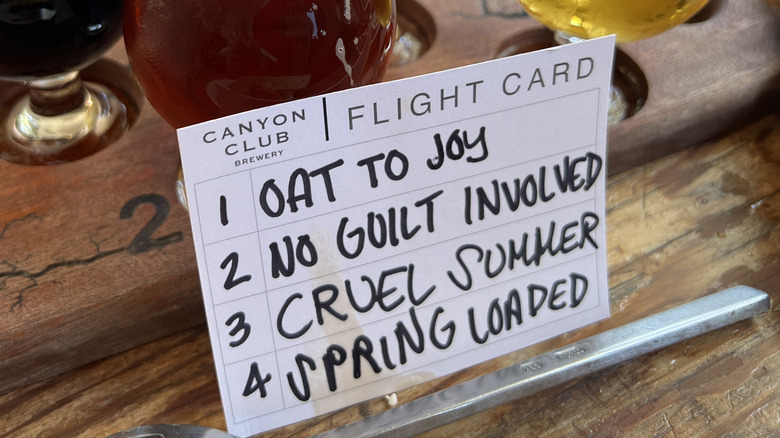 CANYON CLUB BREWERY | FLIGHT CARD
1 OAT TO JOY
2 NO GUILT INVOLVED
3 CRUEL SUMMER
4 SPRING LOADED
2